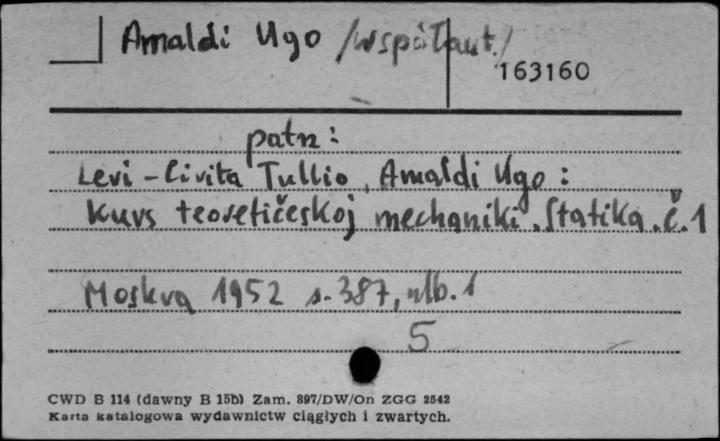 Amaldi Ugo /współaut./
163160
patrz:
Levi-Civita Tullio, Amaldi Ugo:
Kurs teoretičeskoj mechaniki. Statika. č. 1
Moskva 1952 s. 387, nlb. 1
5
CWD B 114 (dawny B 15b) Zam. 897/DW/On ZGG 2542
Karta katalogowa wydawnictw ciągłych i zwartych.